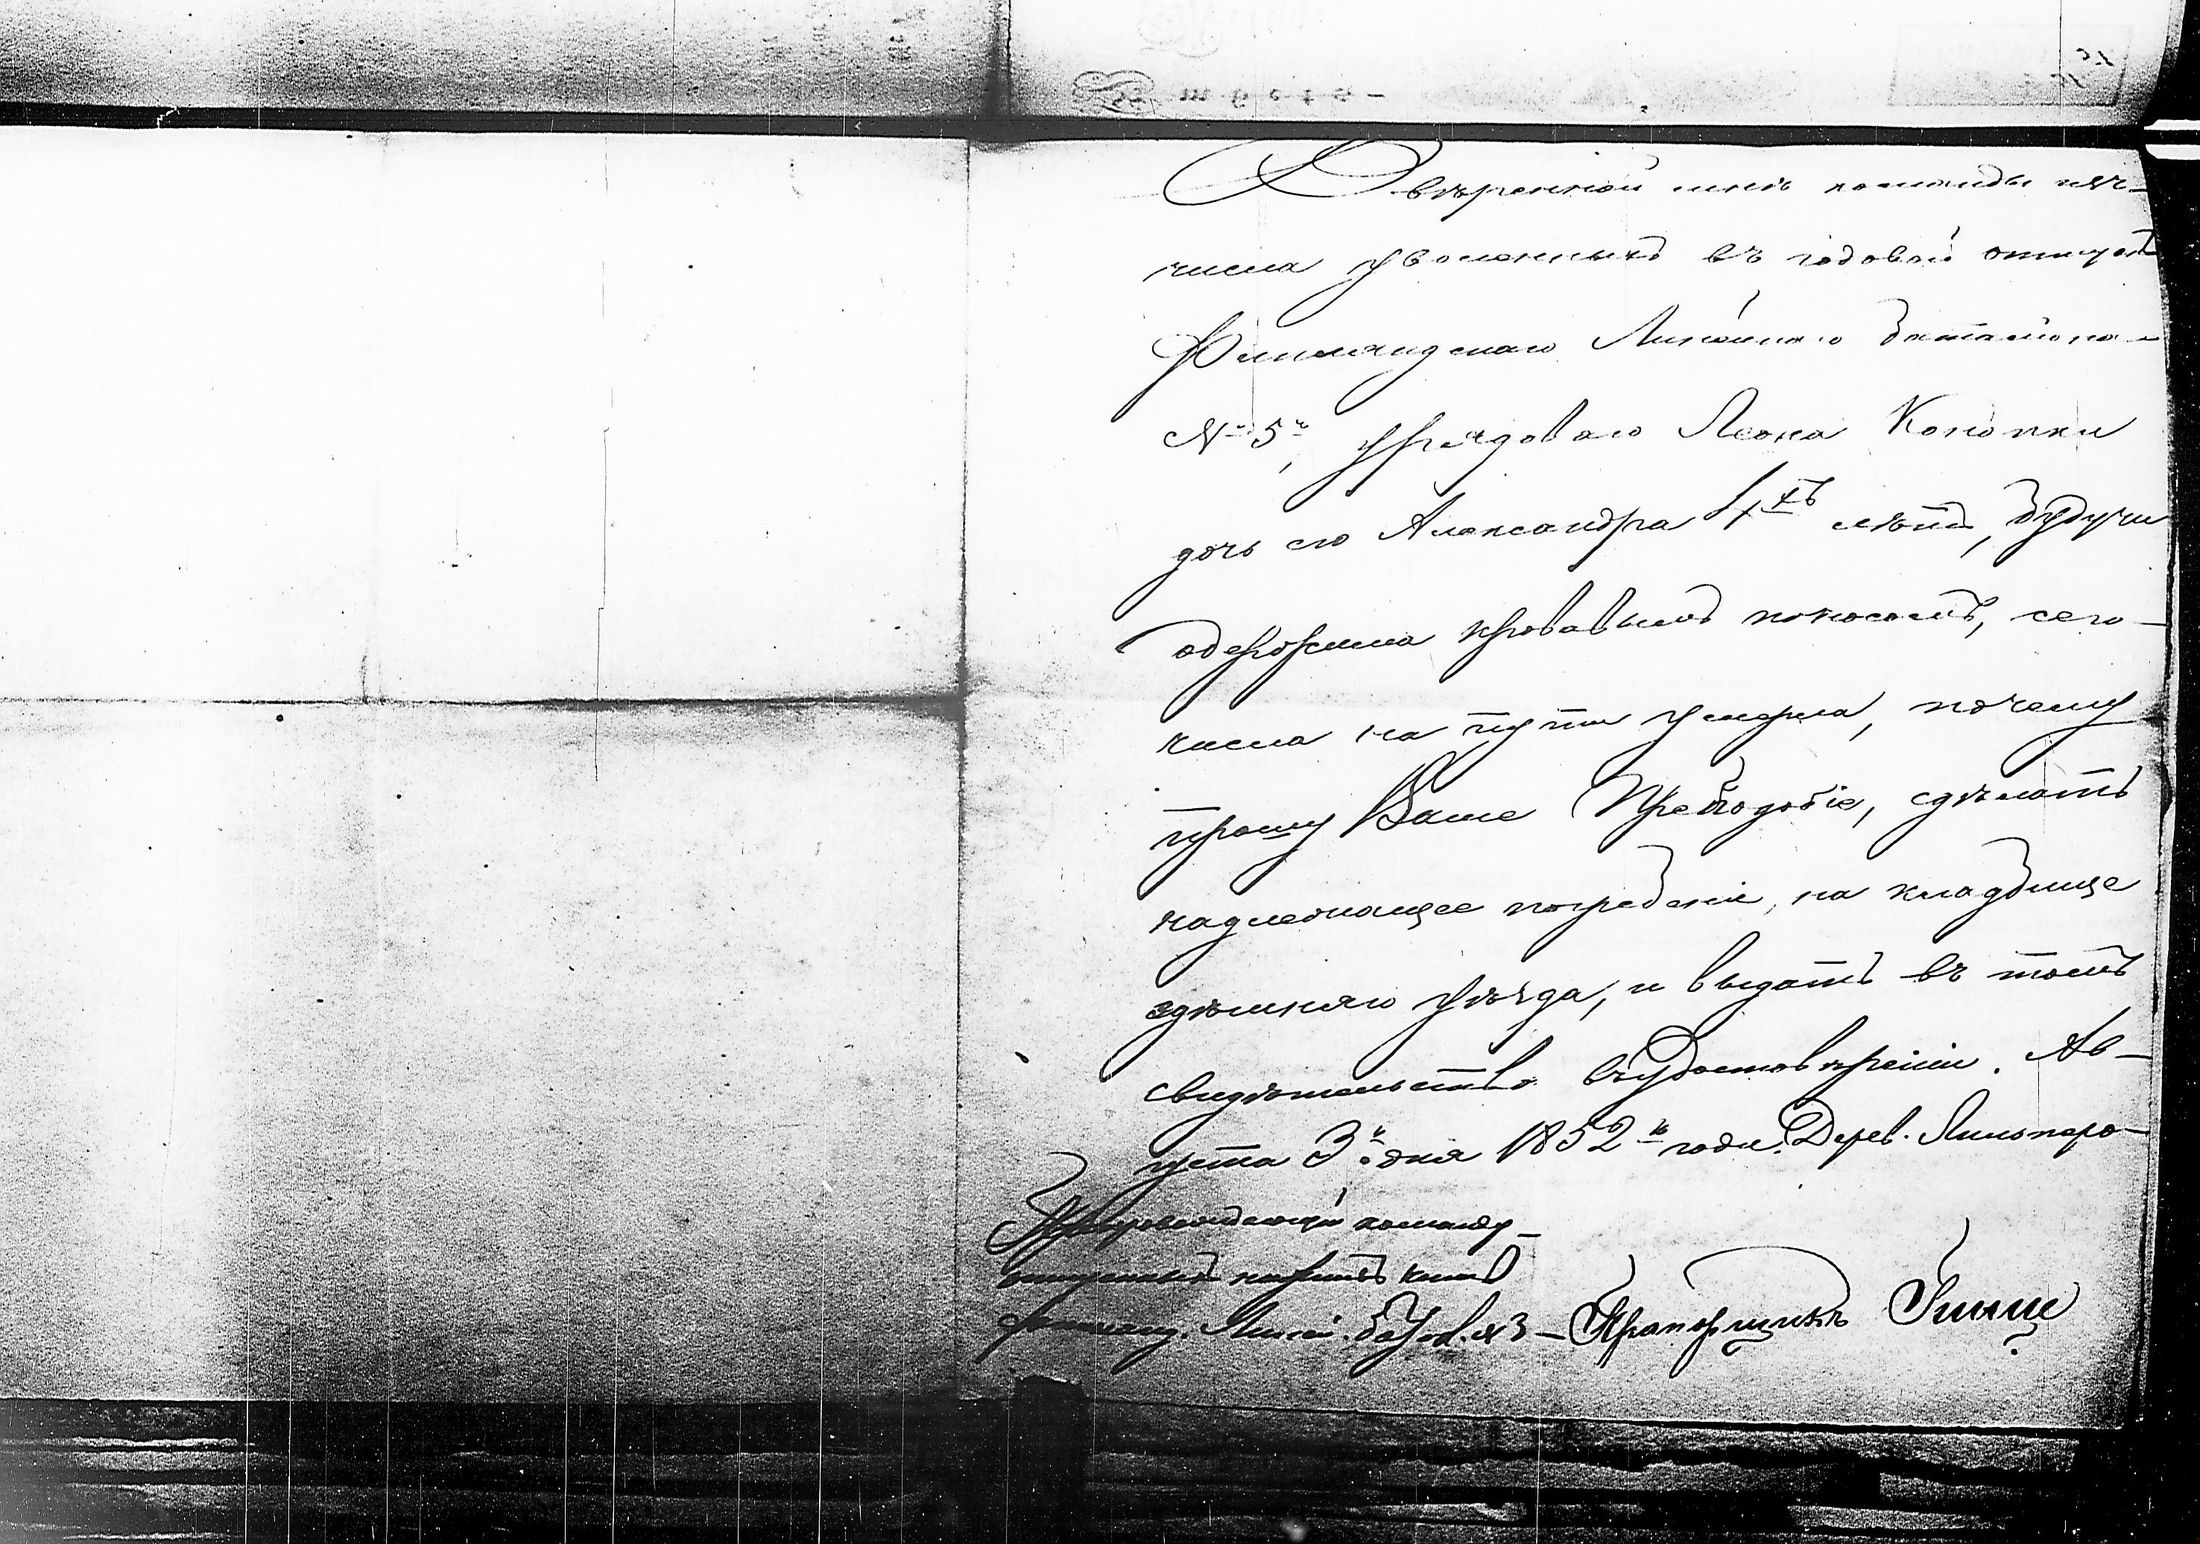 Ввѣренной мнѣ команды изъ
числа уволенныхъ въ годовой отпускъ
Финляндскаго Линѣйнаго баталіона
№ 5го, урядоваго Леона Конопки
дочь его Александра 4хъ лѣтъ, будучи
одержима кровавымъ поносомъ, сего
числа на пути умерла, почему
прошу Ваше Преподобіе, сдѣлать
надлежащее погребеніе, на кладбище
здѣшняго уѣзда, и выдать въ томъ
свидѣтельство въ удостовѣреніи. Ав-
густа 3го дня 1852го года. Дерев.
Препровождающій команду
нижнихъ чиновъ
Финлянд. Линей. № 3 – Прапорщикъ